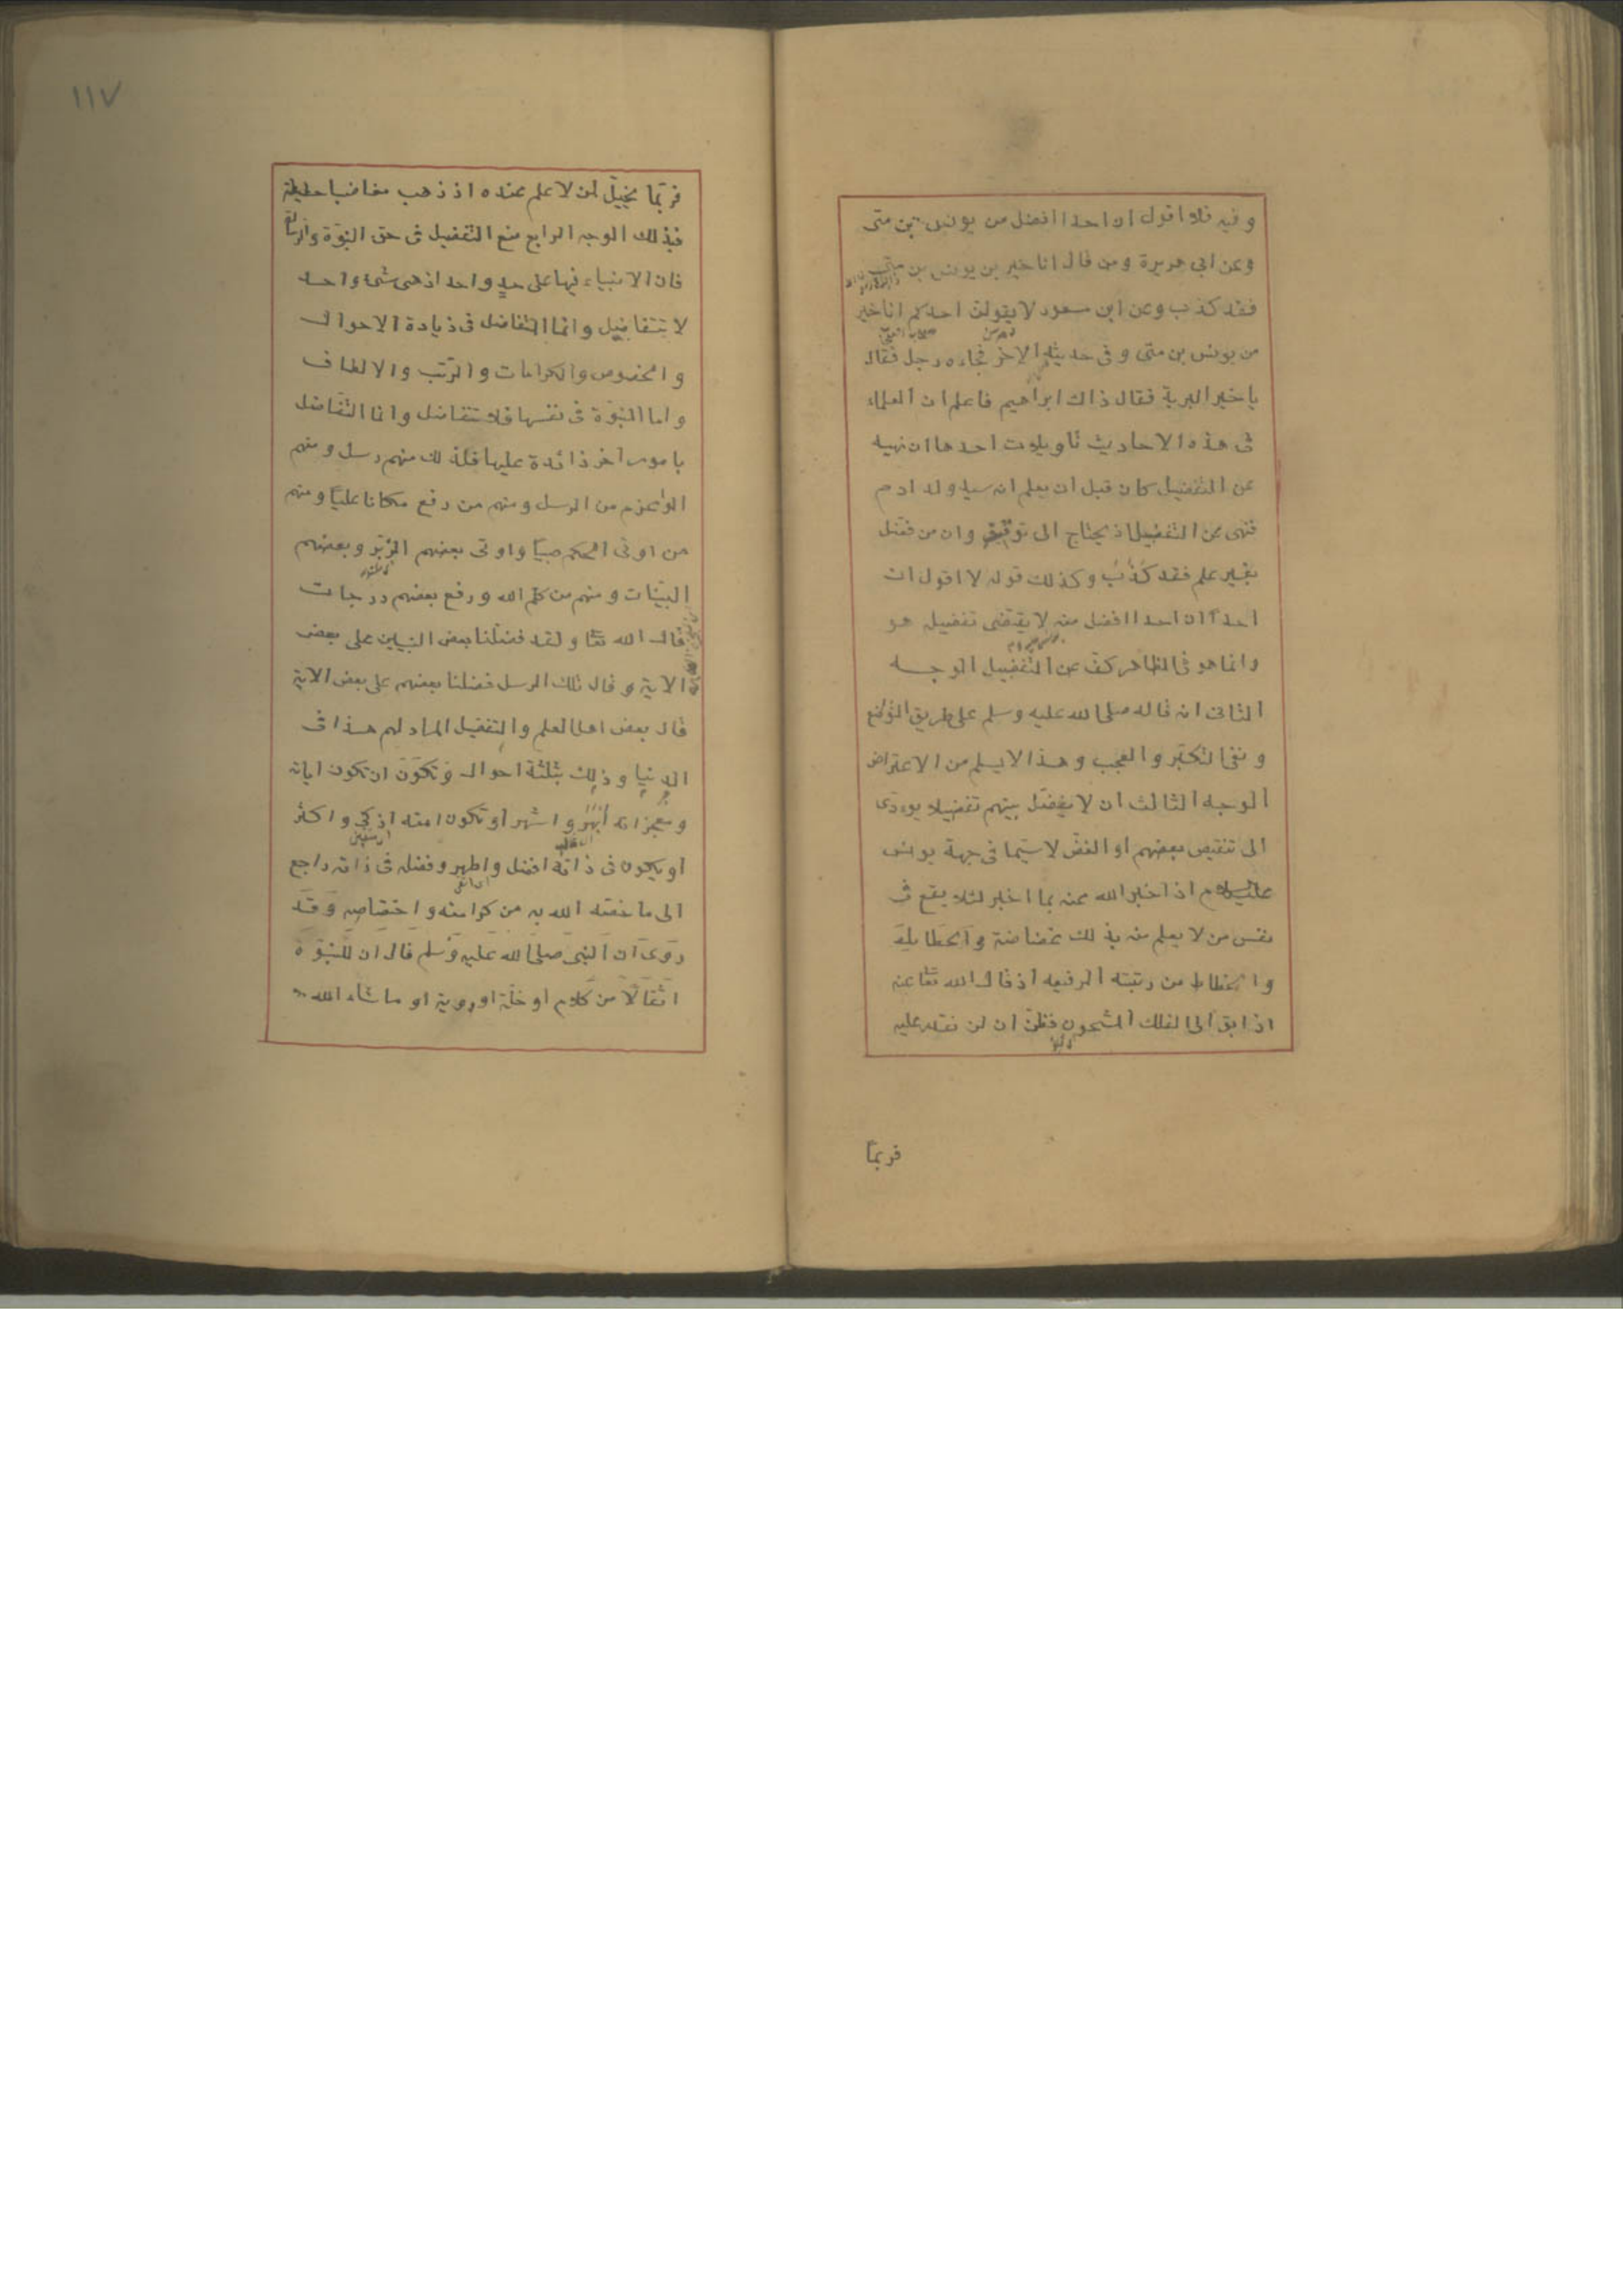 وفيه فلا اقول ان احدا افضل من يونس بن متى
وعن ابى هريرة ومن قال انا خير بن يونس بن متى
فقد كذب وعن ابن مسعود لا يقولن احدكم انا خير
من يونس بن متى وفى حديثه الاخر فجاءه رجل فقال
يا خير البرية فقال ذاك ابراهيم فاعلم ان العلماء
فى هذه الاحاديث تاويلات احدها ان نهيه
عن التفضيل كان قبل ان يعلم انه سيد ولد ادم
فنهى عن التفضيل اذ يحتاج الى توقيف وان من فضل
بغير علم فقد كَذَبَ وكذلك قوله لا اقول ان
احدا ان احدا افضل منه لا يقتضى تفضيله هو
وانما هو فى الظاهر كف عن التفضيل الوجه
الثانى انه قاله صلى الله عليه وسلم على طريق التواضع
ونفى التكبر والعجب وهذا لا يسلم من الاعتراض
الوجه الثالث ان لا يفضل بينهم تفضيلا يودى
الى تنقيص بعضهم او الغض لا سيما فى جهة يونس
عليه السلام اذ اخبر الله عنه بما اخبر لئلا يقع فى
نفس من لا يعلم منه بذلك غضاضة
وانحطاط من رتبته الرفيعه اذ قال الله تعا عنه
اذ ابق الى الفلك المشحون فظن ان لن نقدر عليه
فربما
١١٧
فربما يخيل لمن لا علم عنده اذ ذهب مغاضبا حطيطة
فبذلك الوجه الرابع منع التفضيل فى حق النبوة والرسالة
فان الانبياء فيها على حد واحد اذ هى شئ واحد
لا تتفاضل وانما التفاضل فى زيادة الاحوال
والخصوص والكرامات والرتب والالطاف
واما النبوة فى نفسها فلا تتفاضل وانما التفاضل
بامور اخر زائدة عليها فلذلك منهم رسل ومنهم
اولو عزم من الرسل ومنهم من رفع مكانا عليا ومنهم
من اوتى الحكم صبيا واوتى بعضهم الزبر وبعضهم
البينات ومنهم من كلم الله ورفع بعضهم درجات
قال الله تعا ولقد فضلنا بعض النبيين على بعض
الاية وقال تلك الرسل فضلنا بعضهم على بعض الاية
قال بعض اهل العلم والتفضيل المراد لهم هذا فى
الدنيا وذلك بثلثة احوال وتكون ان تكون اياته
ومعجزاته أبهر واشهر او تكون امته ازكى واكثر
او يكون فى ذاته افضل واطهر وفضله فى ذاته راجع
الى ما خصه الله به من كرامته واختصاصه وقد
روى ان النبى صلى الله عليه وسلم قال ان للنبوة
اثقالا من كلام او خلة او روية او ما شاء الله